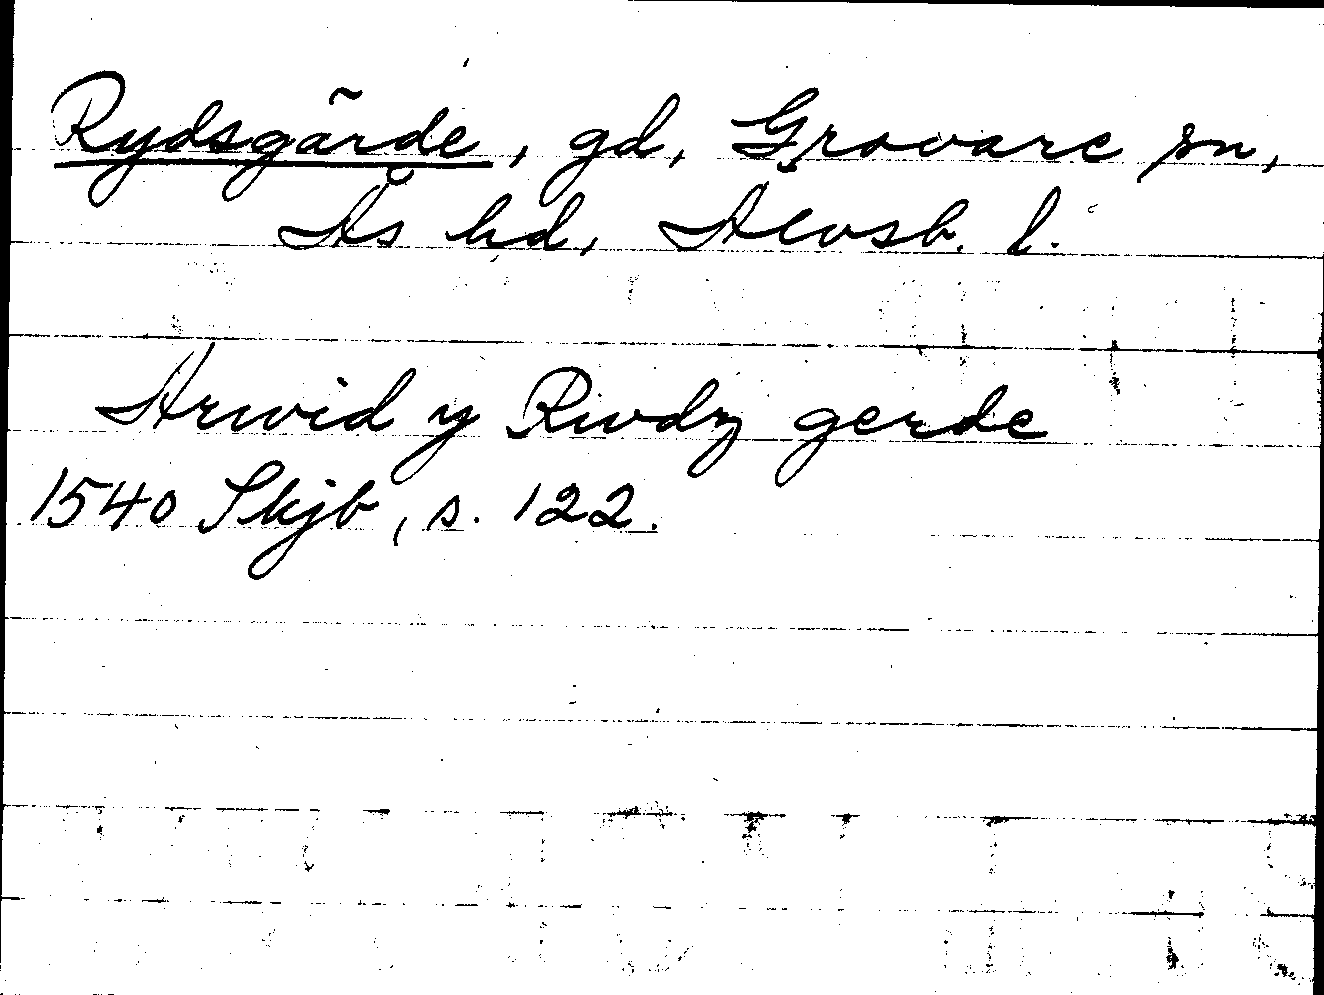 Rydsgärde, gd, Grovare sn,
Ås hd, Älvsb. l.
Arwid y Rwdz gerde
1540 Skjb, s. 122.